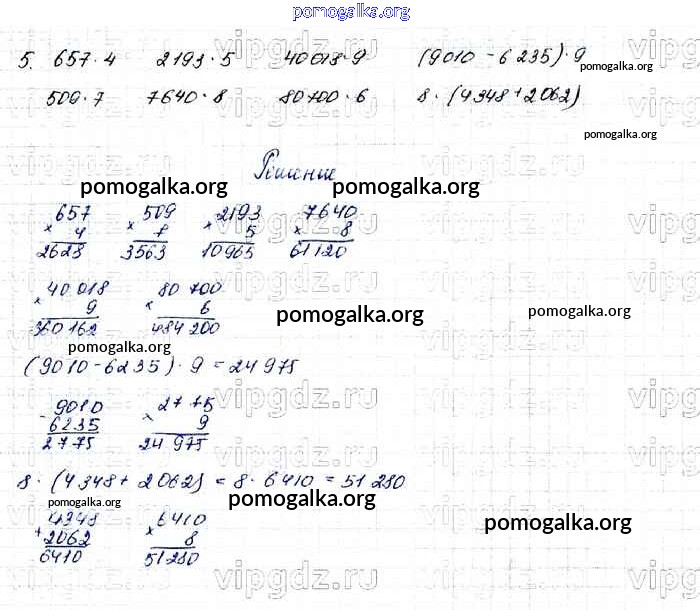 pomogalka.org
5. 657·4 2193·5 40018·9 (9010-6235)·9
pomogalka.org
509·7 7640·8 80700·6 8·(4348+2062)
pomogalka.org
Решение
pomogalka.org pomogalka.org
657 509 2193 7640
× 4 × 7 × 5 × 8
2628 3563 10965 61120
40 018 80 700
× 9 × 6
360 162 484 200
pomogalka.org pomogalka.org
pomogalka.org
(9010-6235)·9 = 24 975
9010 2775
- 6235 × 9
2775 24 975
8·(4348+2062) = 8·6410 = 51 280
pomogalka.org pomogalka.org
4348 6410
+ 2062 × 8
6410 51 280
pomogalka.org
vipgdz.ru